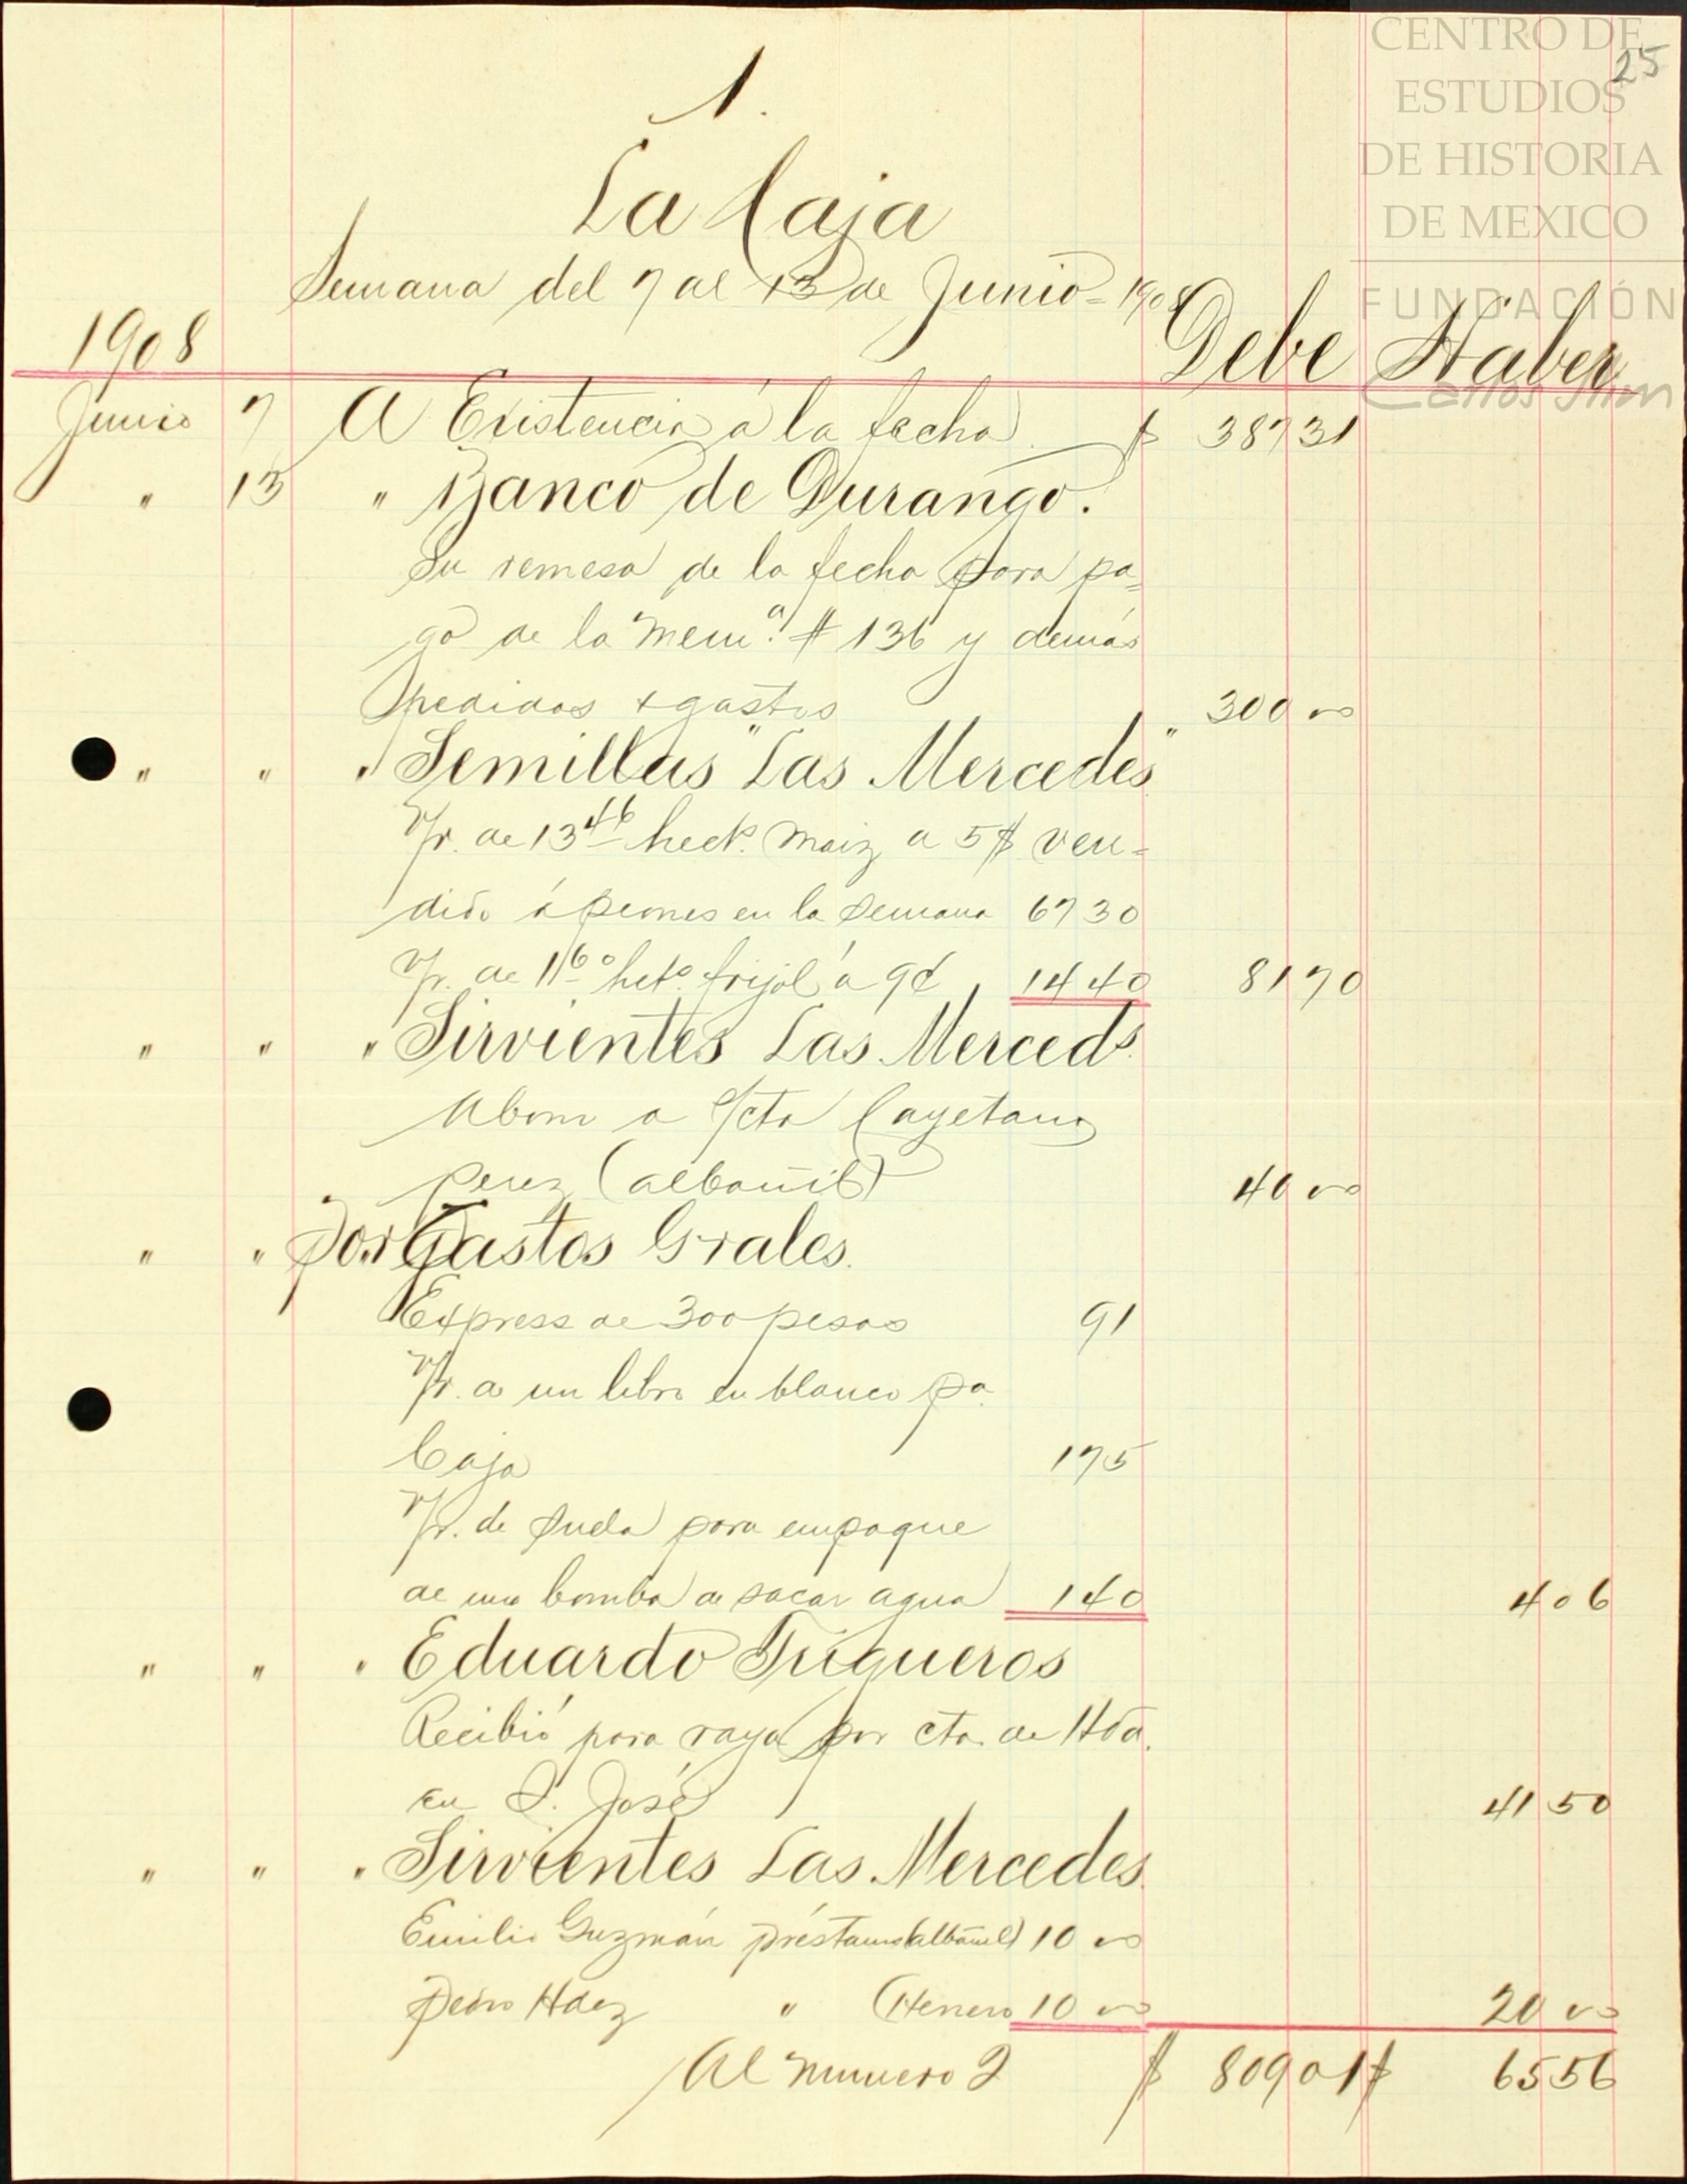 CENTRO DE
25
ESTUDIOS
DE HISTORIA
DE MEXICO
FUNDACIÓN
Carlos Slim
1.
La Caja
Semana del 7 al 13 de Junio=1908
1908 Debe Haber
Junio 7 A Existencia á la fecha. $ 387 31
" 13 " Banco de Durango.
Su remesa de la fecha para pa=
go de la Mem.a # 136 y demás
pedidos & gastos 300 00
" " " Semillas "Las Mercedes"
Vr. de 13 46 hect. Maiz a 5$ ven=
dido á peones en la semana 67 30
Vr. de 1 60 het. frijol á 9$ 14 40 81 70
" " " Sirvientes Las Merceds.
Abono a s/cta Cayetano
Perez (albañil) 40 00
" " Por Gastos Grales.
Express de 300 pesos 91
Vr. de un libro en blanco pa.
Caja 1 75
Vr. de suela para empaque
de una bomba de sacar agua 1 40 4 06
" " " Eduardo Trigueros
Recibió para raya por cta. de Hda.
en S. José 41 50
" " " Sirvientes Las Mercedes.
Emilio Guzmán préstamo (albañil) 10 00
Pedro Hdez " (Herrero 10 00 20 00
Al numero 2 $ 809 01 $ 65 56